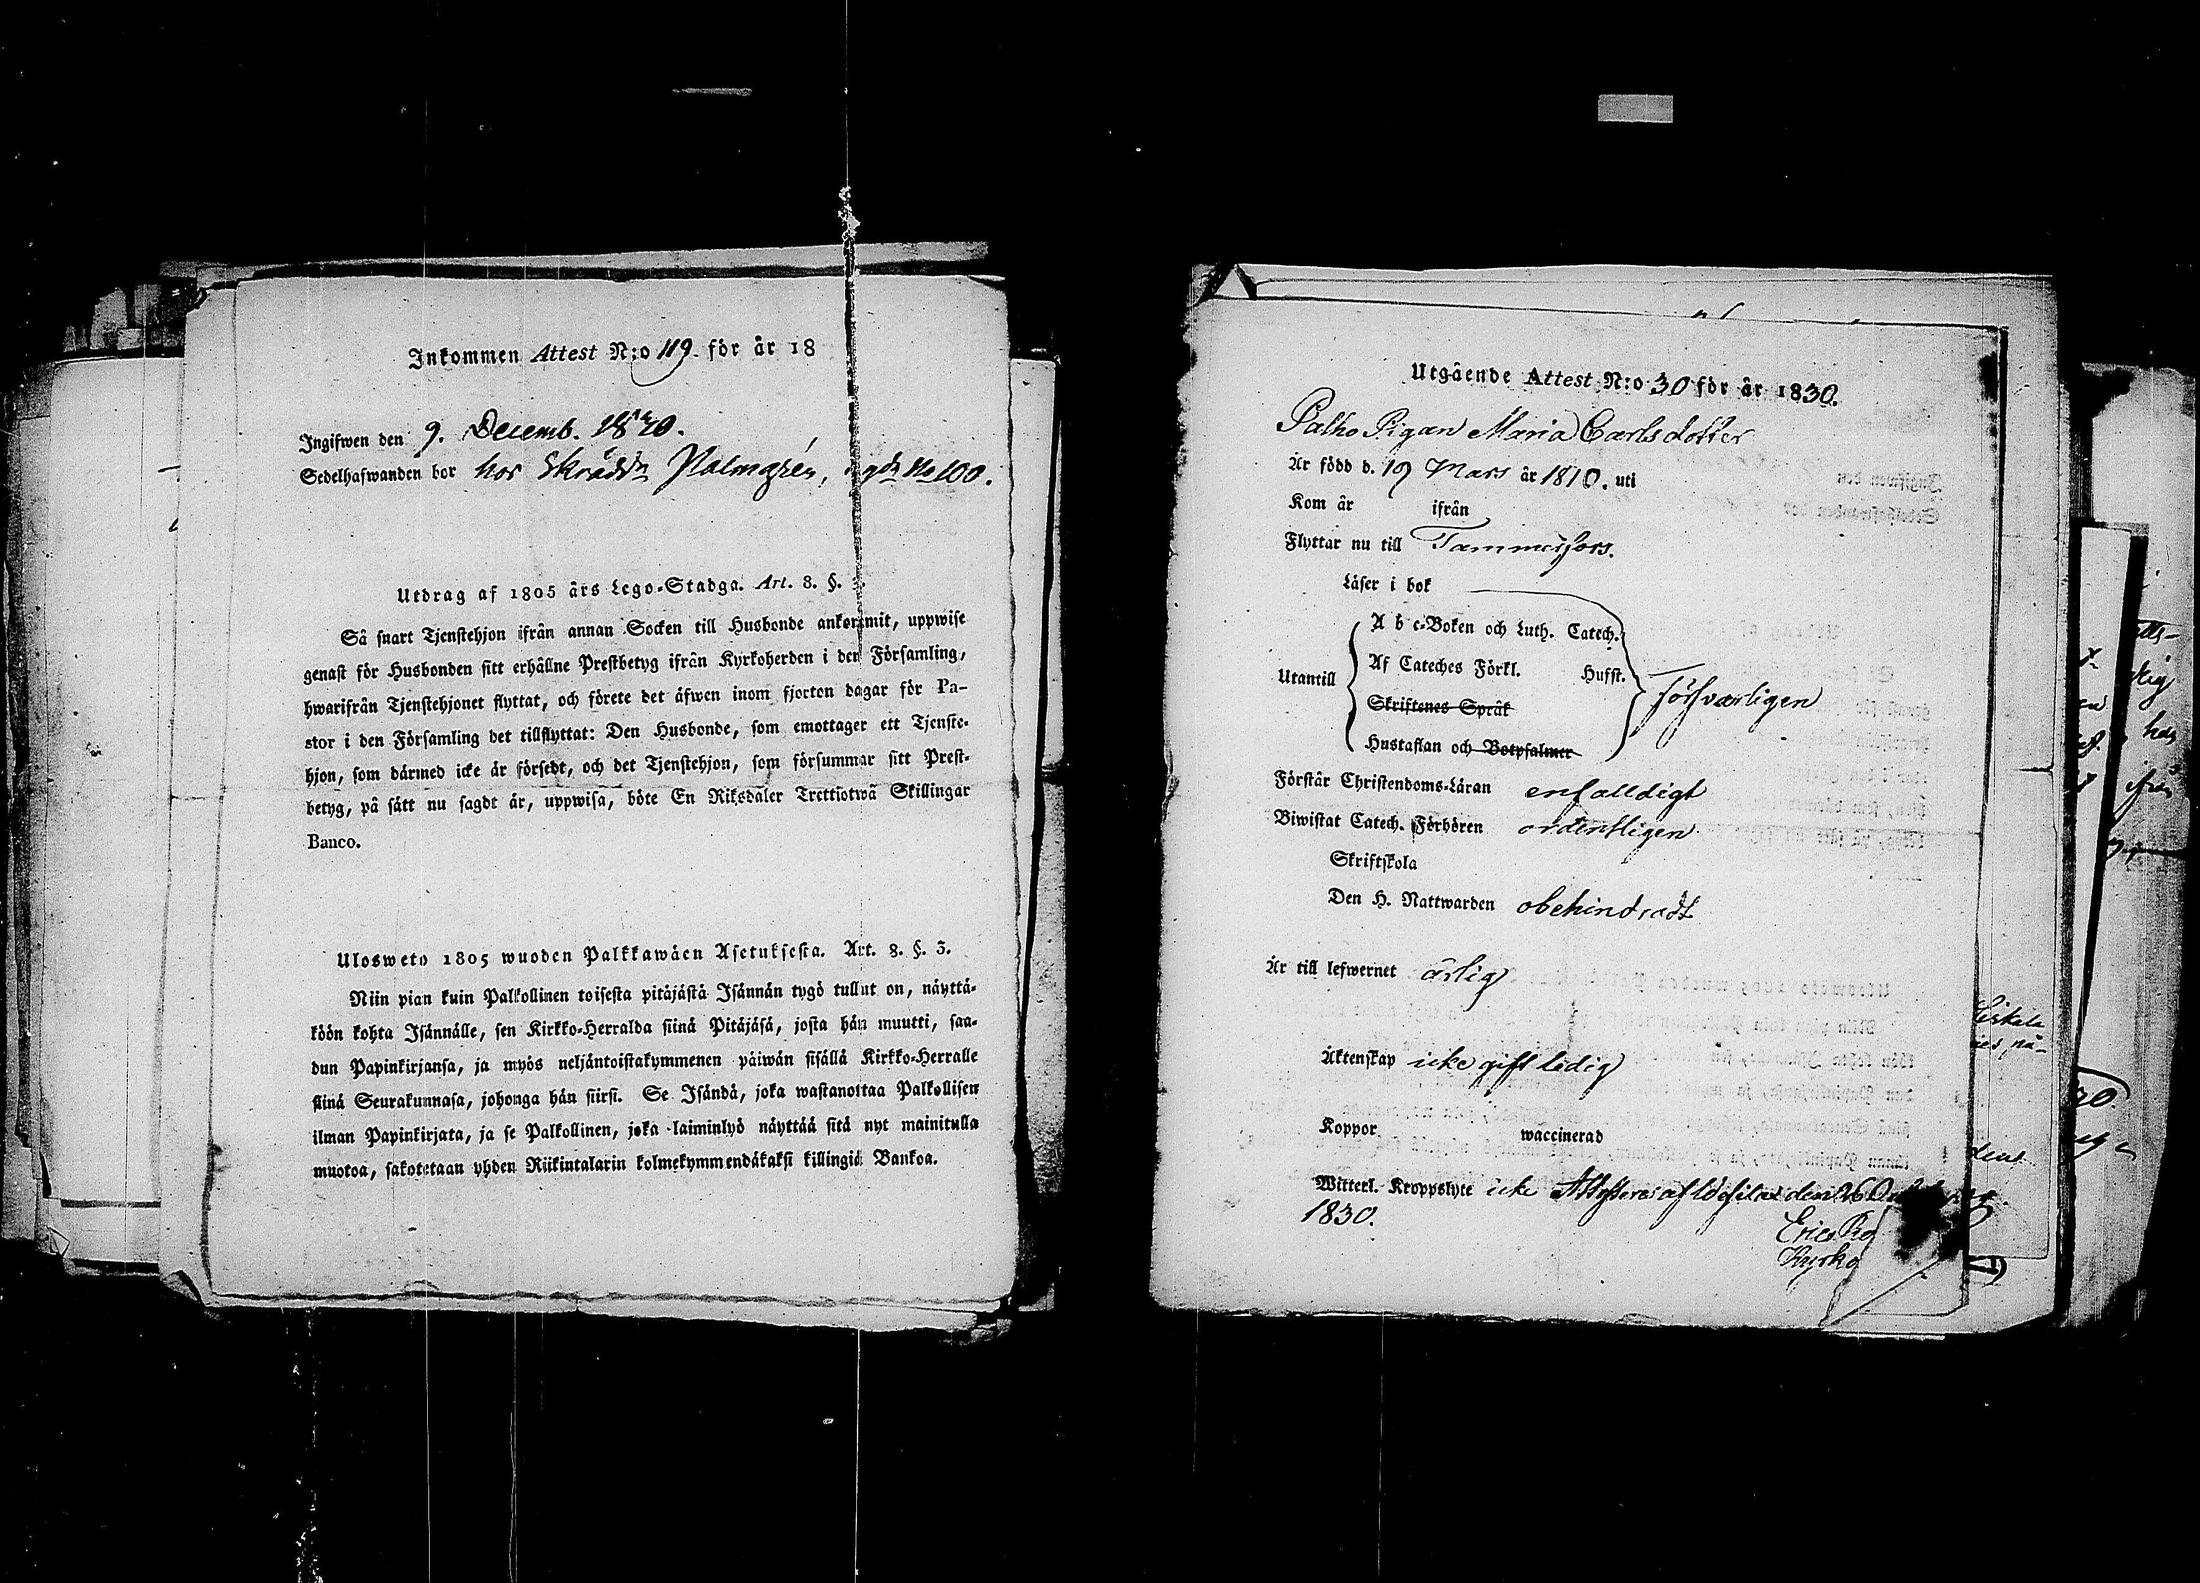 Inkommen Attest N:o 119. för år 18
Ingifwen den 9. Decemb. 1840.
Sedelhafwanden bor hos Skräddn Palmgrén, gdn No 100.
Utdrag af 1805 års Lego-Stadga. Art. 8. §.
Så snart Tjenstehjon ifrån annan Socken till Husbonde ankommit, uppwise
genast för Husbonden sitt erhållne Prestbetyg ifrån Kyrkoherden i den Församling,
hwarifrån Tjenstehjonet flyttat, och förete det äfwen inom fjorton dagar för Pa-
stor i den Församling det tillflyttat: Den Husbonde, som emottager ett Tjenste-
hjon, som därmed icke är försedt, och det Tjenstehjon, som försummar sitt Prest-
betyg, på sätt nu sagdt är, uppwisa, böte En Riksdaler Trettiotwå Skillingar
Banco.
Ulosweto 1805 wuoden Palkkawäen Asetuksesta. Art. 8. §. 3.
Niin pian kuin Palkollinen toisesta pitäjästä Isännän tygö tullut on, näyttä-
köön kohta Isännälle, sen Kirkko-Herralda siinä Pitäjäsä, josta hän muutti, saa-
dun Papinkirjansa, ja myös neljäntoistakymmenen päiwän sisällä Kirkko-Herralle
siinä Seurakunnasa, johonga hän siirsi. Se Isändä, joka wastanottaa Palkollisen
ilman Papinkirjata, ja se Palkollinen, joka laiminlyö näyttää sitä nyt mainitulla
muotoa, sakotetaan yhden Riikintalarin kolmekymmendäkaksi killingiä Bankoa.
Utgående Attest N:o 30 för år 1830.
Palho Pigan Maria Carlsdotter
Är född d. 19 Mars år 1810. uti
Kom år ifrån
Flyttar nu till Tammerfors.
Läser i bok
A b c-Boken och Luth. Catech.
Utantill Af Cateches Förkl. Hufst. Försvarligen
Skriftenes Språk
Hustaflan och Botpsalmer
Förstår Christendoms-Läran enfalldigt
Biwistat Catech. Förhören ordentligen
Skriftskola
Den H. Nattwarden obehindradt
Är till lefwernet ärlig
Äktenskap icke gift ledig
Koppor waccinerad
Witterl. Kroppslyte icke Attesteras af den 26
1830.
Eric
Kyrko